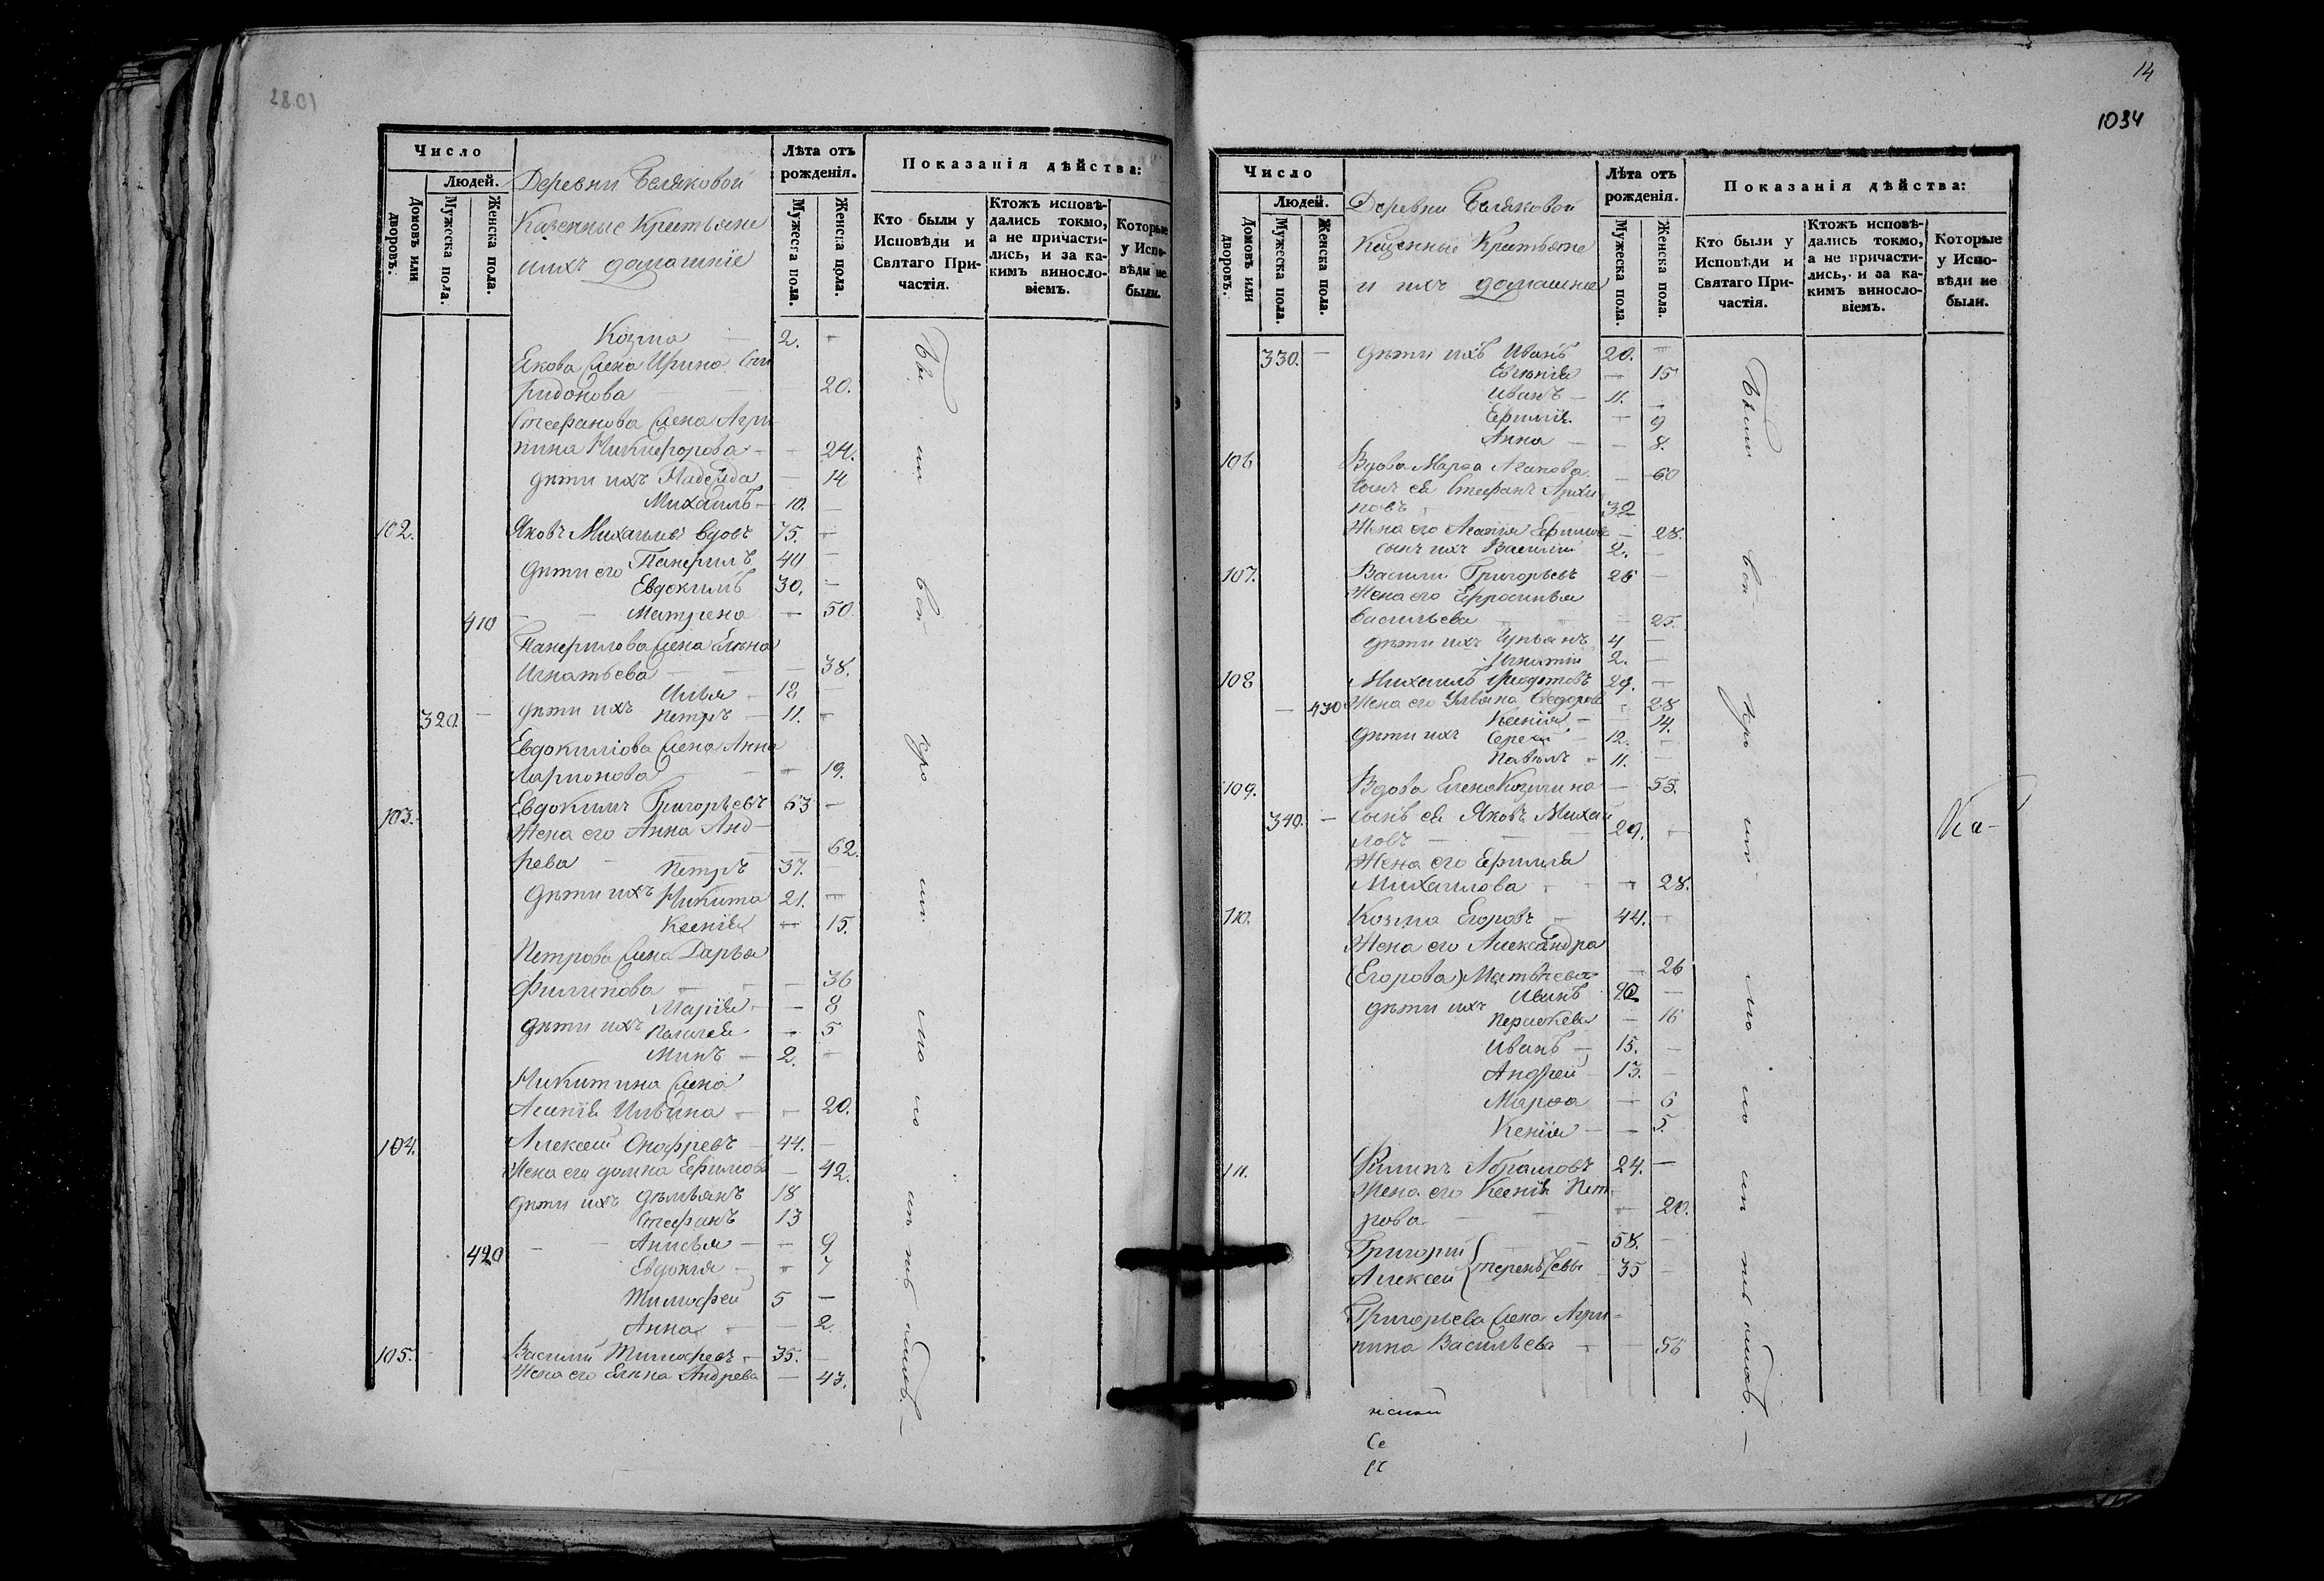 Число
Людей.
Домовъ или дворовъ.
Мужеска пола.
Женска пола.
Деревни Беляковой
Казенные Крестьяне
и ихъ домашніе
Лѣта отъ рожденія.
Мужеска пола.
Женска пола.
Показанія дѣйства:
Кто были у Исповѣди и Святаго Причастія.
Ктожъ исповѣдались токмо, а не причастились, и за какимъ винословіемъ.
Которые у Исповѣди не были.
Козма 2. –
Якова жена Ирина Спи
ридонова 20.
Стефанова жена Агри
пина Никифорова – – 24.
дѣти ихъ Надежда – 14
Михаилъ – 10. –
102. Яковъ Михаиловъ вдовъ 75. –
дѣти его Панфилъ 44 –
Евдокимъ 30. –
410 – – Матрена – 50.
Панфилова жена Елена
Игнатьева – – 38.
дѣти ихъ Илья – 12 –
320. – Петръ – 11. –
Евдокимова жена Анна
Ларионова – – 19.
103. Евдокимъ Григорьевъ 63 –
Жена его Анна Анд–
рева – – 62.
дѣти ихъ Петръ 37.
Никита 21. –
Ксенія – 15.
Петрова жена Дарья
Филипова – – 36
дѣти ихъ Марія – – 8
Пелагея – 5
Минъ – 2. –
Никитина жена
Ильина – – 20.
104. Алексей Онофревъ – 44. –
Жена его домна Ефимова – 42.
дѣти ихъ Демьянъ 18
Стефанъ 13
420 – – Анисья – – 9
Евдокия – – 7
Тимофей 5 –
Анна – – 2
105. – Василий Тимофевъ – 35. –
Жена его Елена Андрева – 43.
Бы
ли
во
14
1034
Число
Людей.
Домовъ или дворовъ.
Мужеска пола.
Женска пола.
Деревни Беляковой
Казенные Крестьяне
и ихъ домашніе
Лѣта отъ рожденія.
Мужеска пола.
Женска пола.
Показанія дѣйства:
Кто были у Исповѣди и Святаго Причастія.
Ктожъ исповѣдались токмо, а не причастились, и за какимъ винословіемъ.
Которые у Исповѣди не были.
330. – дѣти ихъ Иванъ 20. –
Евгенія – 15
Иванъ – 11. –
– 9
Анна – – 8.
106 Вдова Марѳа – 60
Сынъ ея Стефанъ Архи
повъ 32
Жена его Агафія – 28.
сынъ ихъ Василий 2. –
107. Василий Григорьевъ 26 –
Жена его Ефросинья
Васильева – 25.
дѣти ихъ 4 –
Игнатий 2. –
108 Михаилъ 29. –
– 430 Жена его Ульяна Ѳедорова – 28
Ксенія – – 14.
дѣти ихъ Сергей – 12. –
Павелъ – 11. –
109. Вдова Елена Козмина – 55.
340. – сынъ ея Яковъ Михаи
ловъ – – 29. –
Жена его
Михаилова – – 28.
110. Козма Егоровъ – 44. –
Жена его Александра
(Егорова) Матвѣева – 26
дѣти ихъ Иванъ 20 –
Перасковья – 16
Иванъ – 15. –
Андрей – 13. –
Марѳа – 6
Ксенія – – 5.
111. Филипъ Абрамовъ 24. –
Жена его Ксенія Пет
рова – – 20.
Григорий – – 58. –
Алексей Терентьевы 35 –
Григорьева жена Агри–
пина Васильева – – 56
Были